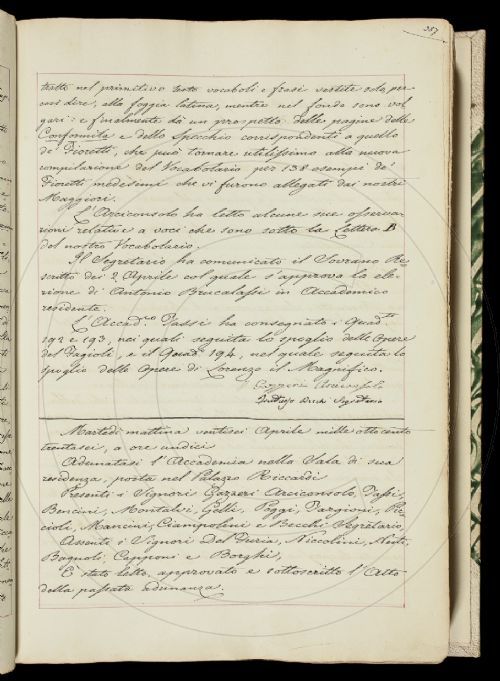 387
tratte nel primitivo testo vocaboli e frasi vestite solo, per
così dire, alla foggia latina, mentre nel fondo sono vol
gari: e finalmente dà un prospetto delle pagine delle
Conformità e dello Specchio corrispondenti a quello
de' Fioretti, che può tornare utilissimo alla nuova
compilazione del Vocabolario per 138 esempi de'
Fioretti medesimi che vi furono allegati dai nostri
Maggiori.
L'Arciconsolo ha letto alcune sue osserva
zioni relative a voci che sono sotto la Lettera B
del nostro Vocabolario.
Il Segretario ha comunicato il Sovrano Re
scritto dei 2 Aprile col quale s'approva la ele
zione di Antonio Brucalassi in Accademico
residente.
L'Accad.co Tassi ha consegnato i Quad.ni
192 e 193, nei quali seguita lo spoglio delle Opere
del Fagioli, e il Quad.no 194, nel quale seguita lo
spoglio delle Opere di Lorenzo il Magnifico.
Gazzeri Arciconsolo
Fruttuoso Becchi Segretario
Martedì mattina ventisei Aprile mille ottocento
trentasei, a ore undici
Adunatasi l'Accademia nella Sala di sua
residenza, posta nel Palazzo Riccardi
Presenti i Signori Gazzeri Arciconsolo, Tassi,
Bencini, Montalvi, Gelli, Poggi, Targioni, Re
cioli, Mancini, Ciampolini e Becchi Segretario,
Assenti i Signori Del Furia, Niccolini, Nesti,
Bagnoli, Capponi e Borghi,
È stato letto, approvato e sottoscritto l'Atto
della passata adunanza.